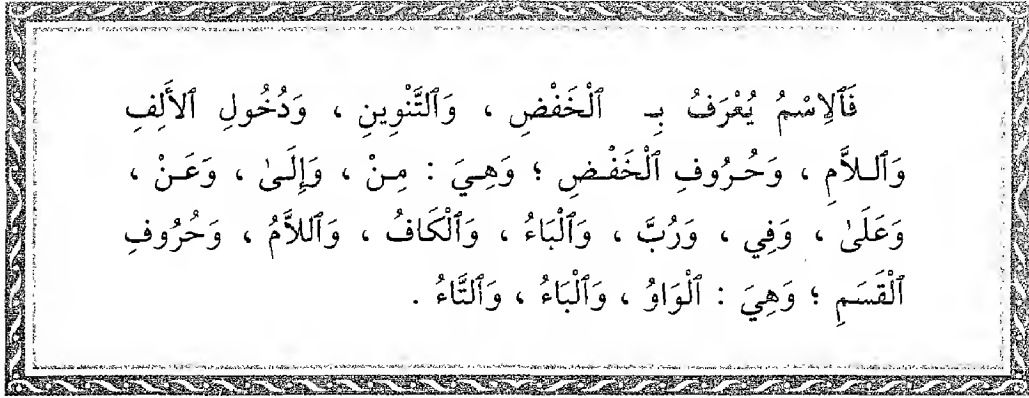 فَٱلِاسْمُ يُعْرَفُ بِـ ٱلْخَفْضِ ، وَٱلتَّنْوِينِ ، وَدُخُولِ ٱلأَلِفِ
وَٱللاَّمِ ، وَحُرُوفِ ٱلْخَفْضِ ؛ وَهِيَ : مِنْ ، وَإِلَىٰ ، وَعَنْ ،
وَعَلَىٰ ، وَفِي ، وَرُبَّ ، وَٱلْبَاءُ ، وَٱلْكَافُ ، وَٱللاَّمُ ، وَحُرُوفِ
ٱلْقَسَمِ ؛ وَهِيَ : ٱلْوَاوُ ، وَٱلْبَاءُ ، وَٱلتَّاءُ .